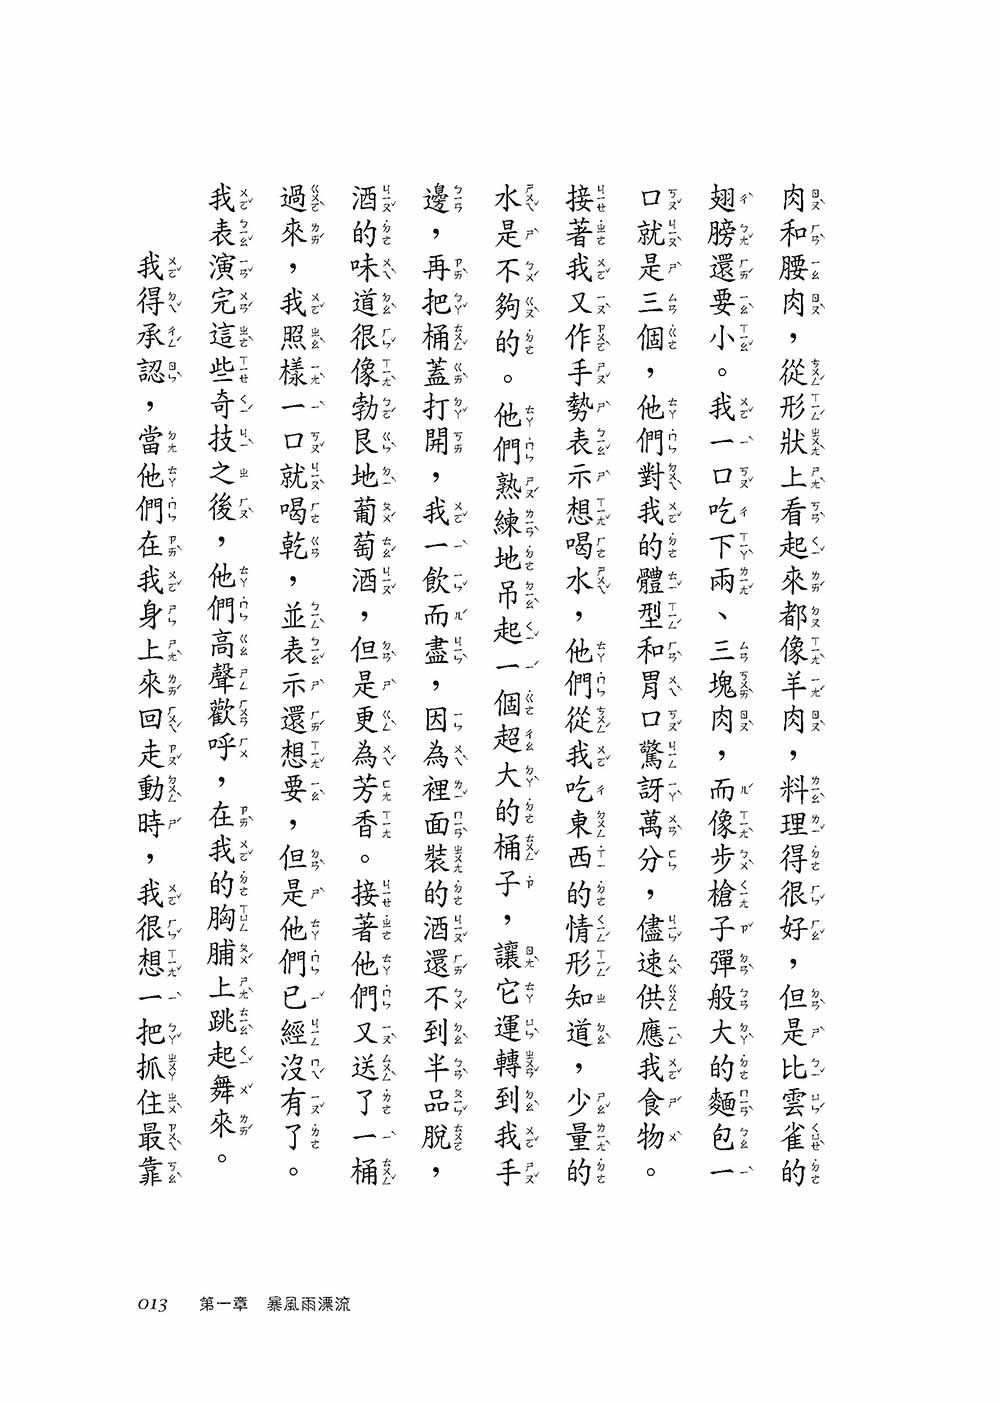 肉和腰肉，從形狀上看起來都像羊肉，料理得很好，但是比雲雀的
翅膀還要小。我一口吃下兩、三塊肉，而像步槍子彈般大的麵包一
口就是三個，他們對我的體型和胃口驚訝萬分，儘速供應我食物。
接著我又作手勢表示想喝水，他們從我吃東西的情形知道，少量的
水是不夠的。他們熟練地吊起一個超大的桶子，讓它運轉到我手
邊，再把桶蓋打開，我一飲而盡，因為裡面裝的酒還不到半品脫，
酒的味道很像勃艮地葡萄酒，但是更為芳香。接著他們又送了一桶
過來，我照樣一口就喝乾，並表示還想要，但是他們已經沒有了。
我表演完這些奇技之後，他們高聲歡呼，在我的胸脯上跳起舞來。
我得承認，當他們在我身上來回走動時，我很想一把抓住最靠
013 第一章 暴風雨漂流